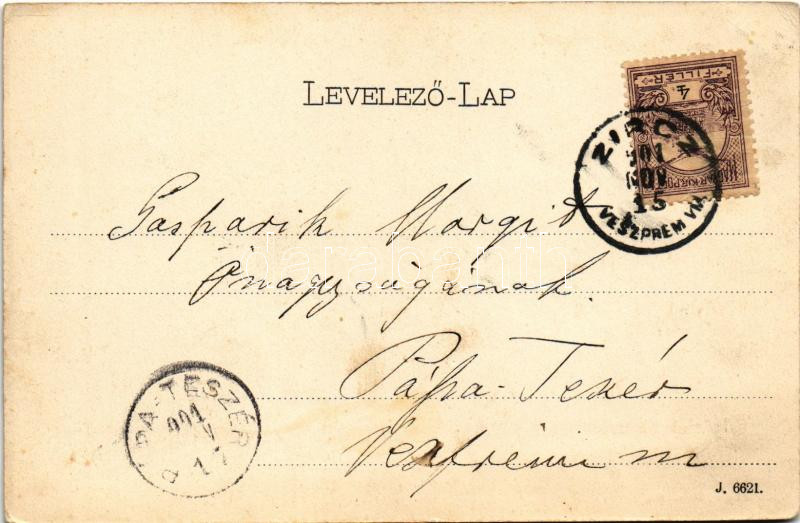 LEVELEZŐ-LAP
4
FILLÉR
MAGYAR KIR. POSTA
ZIRCZ
901
NOV
15
VESZPRÉM VM
Gasparik Margit
Önagyságának.
Pápa-Tekér
Veszprém m
PÁPA-TESZÉR
901
17
J. 6621.